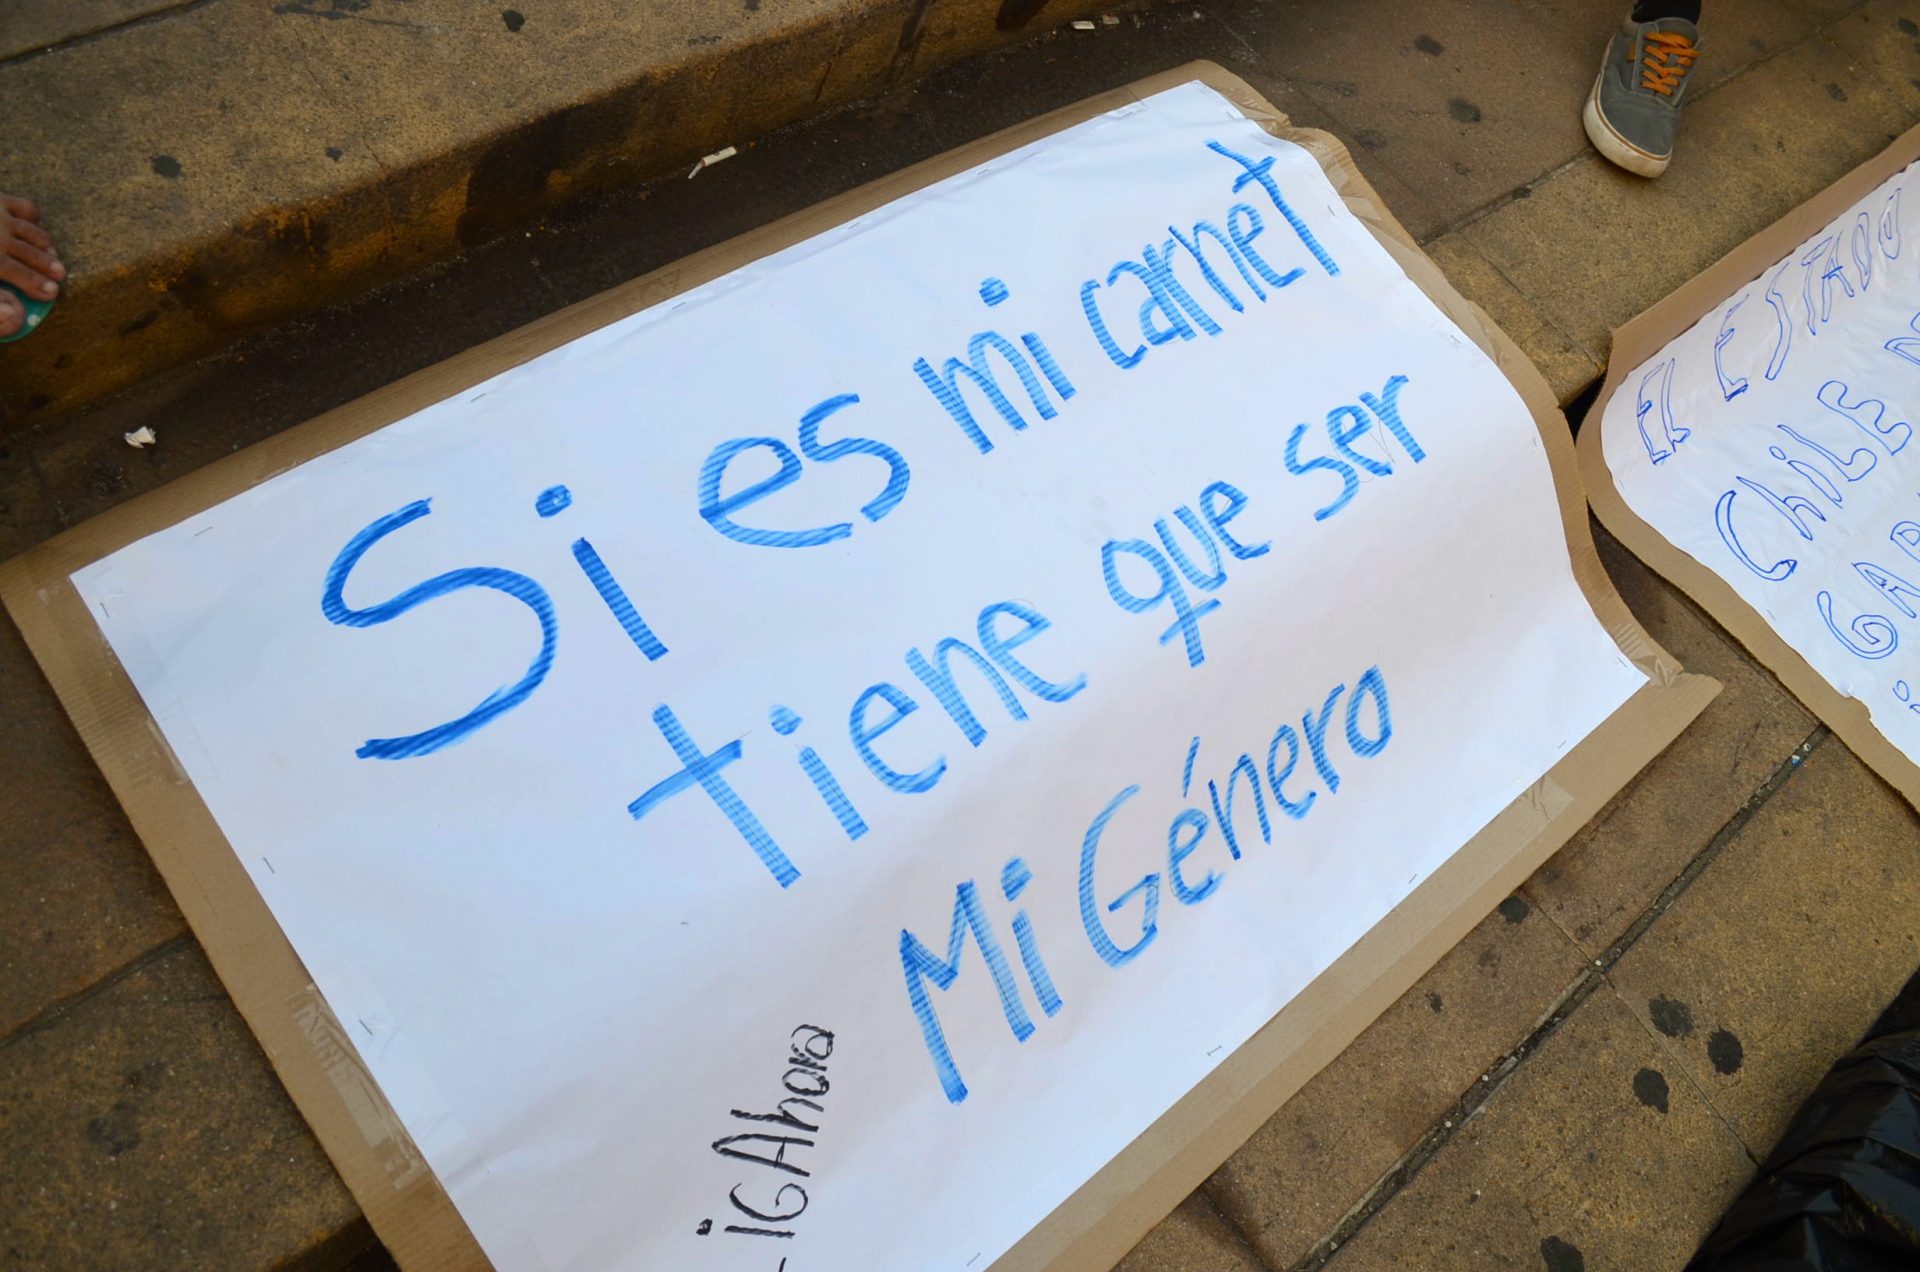 Si es mi carnet
tiene que ser
Mi Género
- iGAhora
El ESTADO
ChiLE